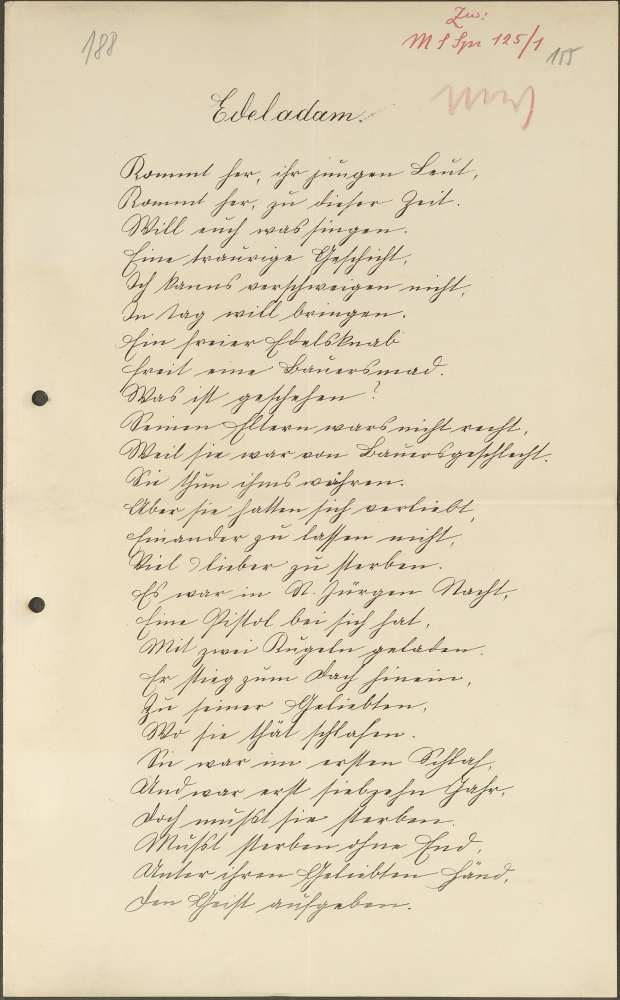 188
Zu:
M S Spr 125/1
155
Edeladam.
Kommt her, ihr jungen Leut,
Kommt her, zu dieser Zeit.
Will euch was singen.
Eine traurige Geschicht,
Ich kanns verschweigen nicht,
In tag will bringen.
Ein freier Edelsknab
Freit eine Bauersmad.
Was ist geschehen?
Seinen Eltern wars nicht recht,
Weil sie war von Bauersgeschlecht.
Sie thun ihms währen.
Aber sie hatten sich verliebt,
Einander zu lassen nicht,
Viel lieber zu sterben.
Es war in St. Jürgen Nacht,
Eine Pistol bei sich hat,
Mit zwei Kugeln geladen.
Er stieg zum Dach hinein,
Zu seiner Geliebten,
Wo sie thät schlafen.
Sie war im ersten Schlaf,
Und war erst siebzehn Jahr,
Doch musst sie sterben.
Musst sterben ohne End,
Unter ihren Geliebten Händ,
Den Geist aufgeben.